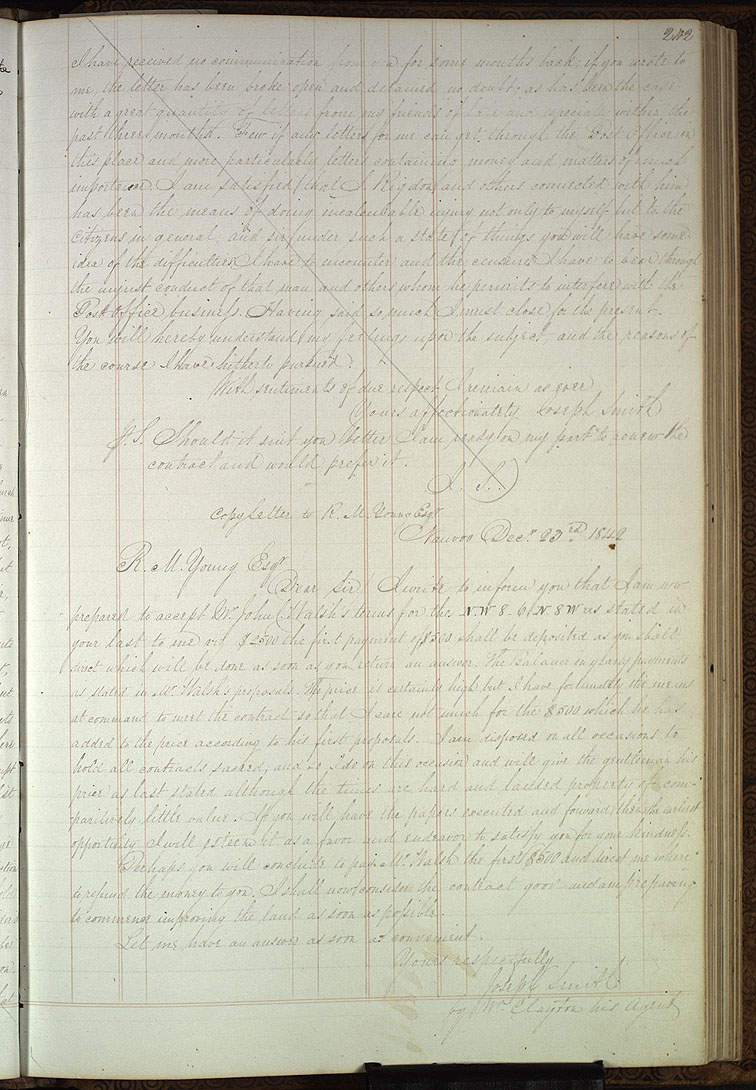 242
I have received no communication from you for some months back; if you wrote to
me, the letter has been broke open and detained no doubt, as has been the case
with a great quantity of letters from my friends of late and especially within the
past three months. Few if any letters for me can get through the Post Office in
this place and more particularly letters containing money and matters of much
importance. I am satisfied that S. Rigdon and others connected with him
has been the means of doing incalculable injury not only to myself but to the
Citizens in general; and sir under such a state of things you will have some
idea of the difficulties I have to encounter and the censure I have to bear through
the unjust conduct of that man and others whom he permits to interfere with the
Post Office business. Having said so much I must close for the present.
You will hereby understand my feelings upon the subject and the reasons of
the course I have hitherto pursued.
With sentiments of due respect I remain as ever
Yours affectionately Joseph Smith
P.S. Should it suit you better I am ready on my part to renew the
contract and would prefer it.
J. S.
Copy Letter to R. M. Young Esqr.
Nauvoo Decr. 23rd 1842
R. M. Young Esqr
Dear Sir I write to inform you that I am now
prepared to accept Mr John Walsh's terms for the N.W 8. 6 N. 8 W as stated in
your last to me viz $2500 the first payment of $500 shall be deposited as you shall
direct which will be done as soon as you return an answer. The Balance in yearly payments
as stated in Mr. Walsh's proposals. The price is certainly high but I have fortunately the means
at command to meet the contract so that I care not much for the $500 which he has
added to the price according to his first proposals. I am disposed on all occasions to
hold all contracts sacred, and so I do on this occasion and will give the gentleman his
price as last stated although the times are hard and landed property of com-
paritively little value. If you will have the papers executed and forward them the earliest
opportunity I will esteem it as a favor and endeavor to satisfy you for your kindness.
Perhaps you will conclude to pay Mr Walsh the first $500 and direct me where
to refund the money to you. I shall now consider the contract good and am preparing
to commence improving the land as soon as possible.
Let me have an answer as soon as convenient.
Yours respectfully
Joseph Smith
by Wm Clayton his Agent